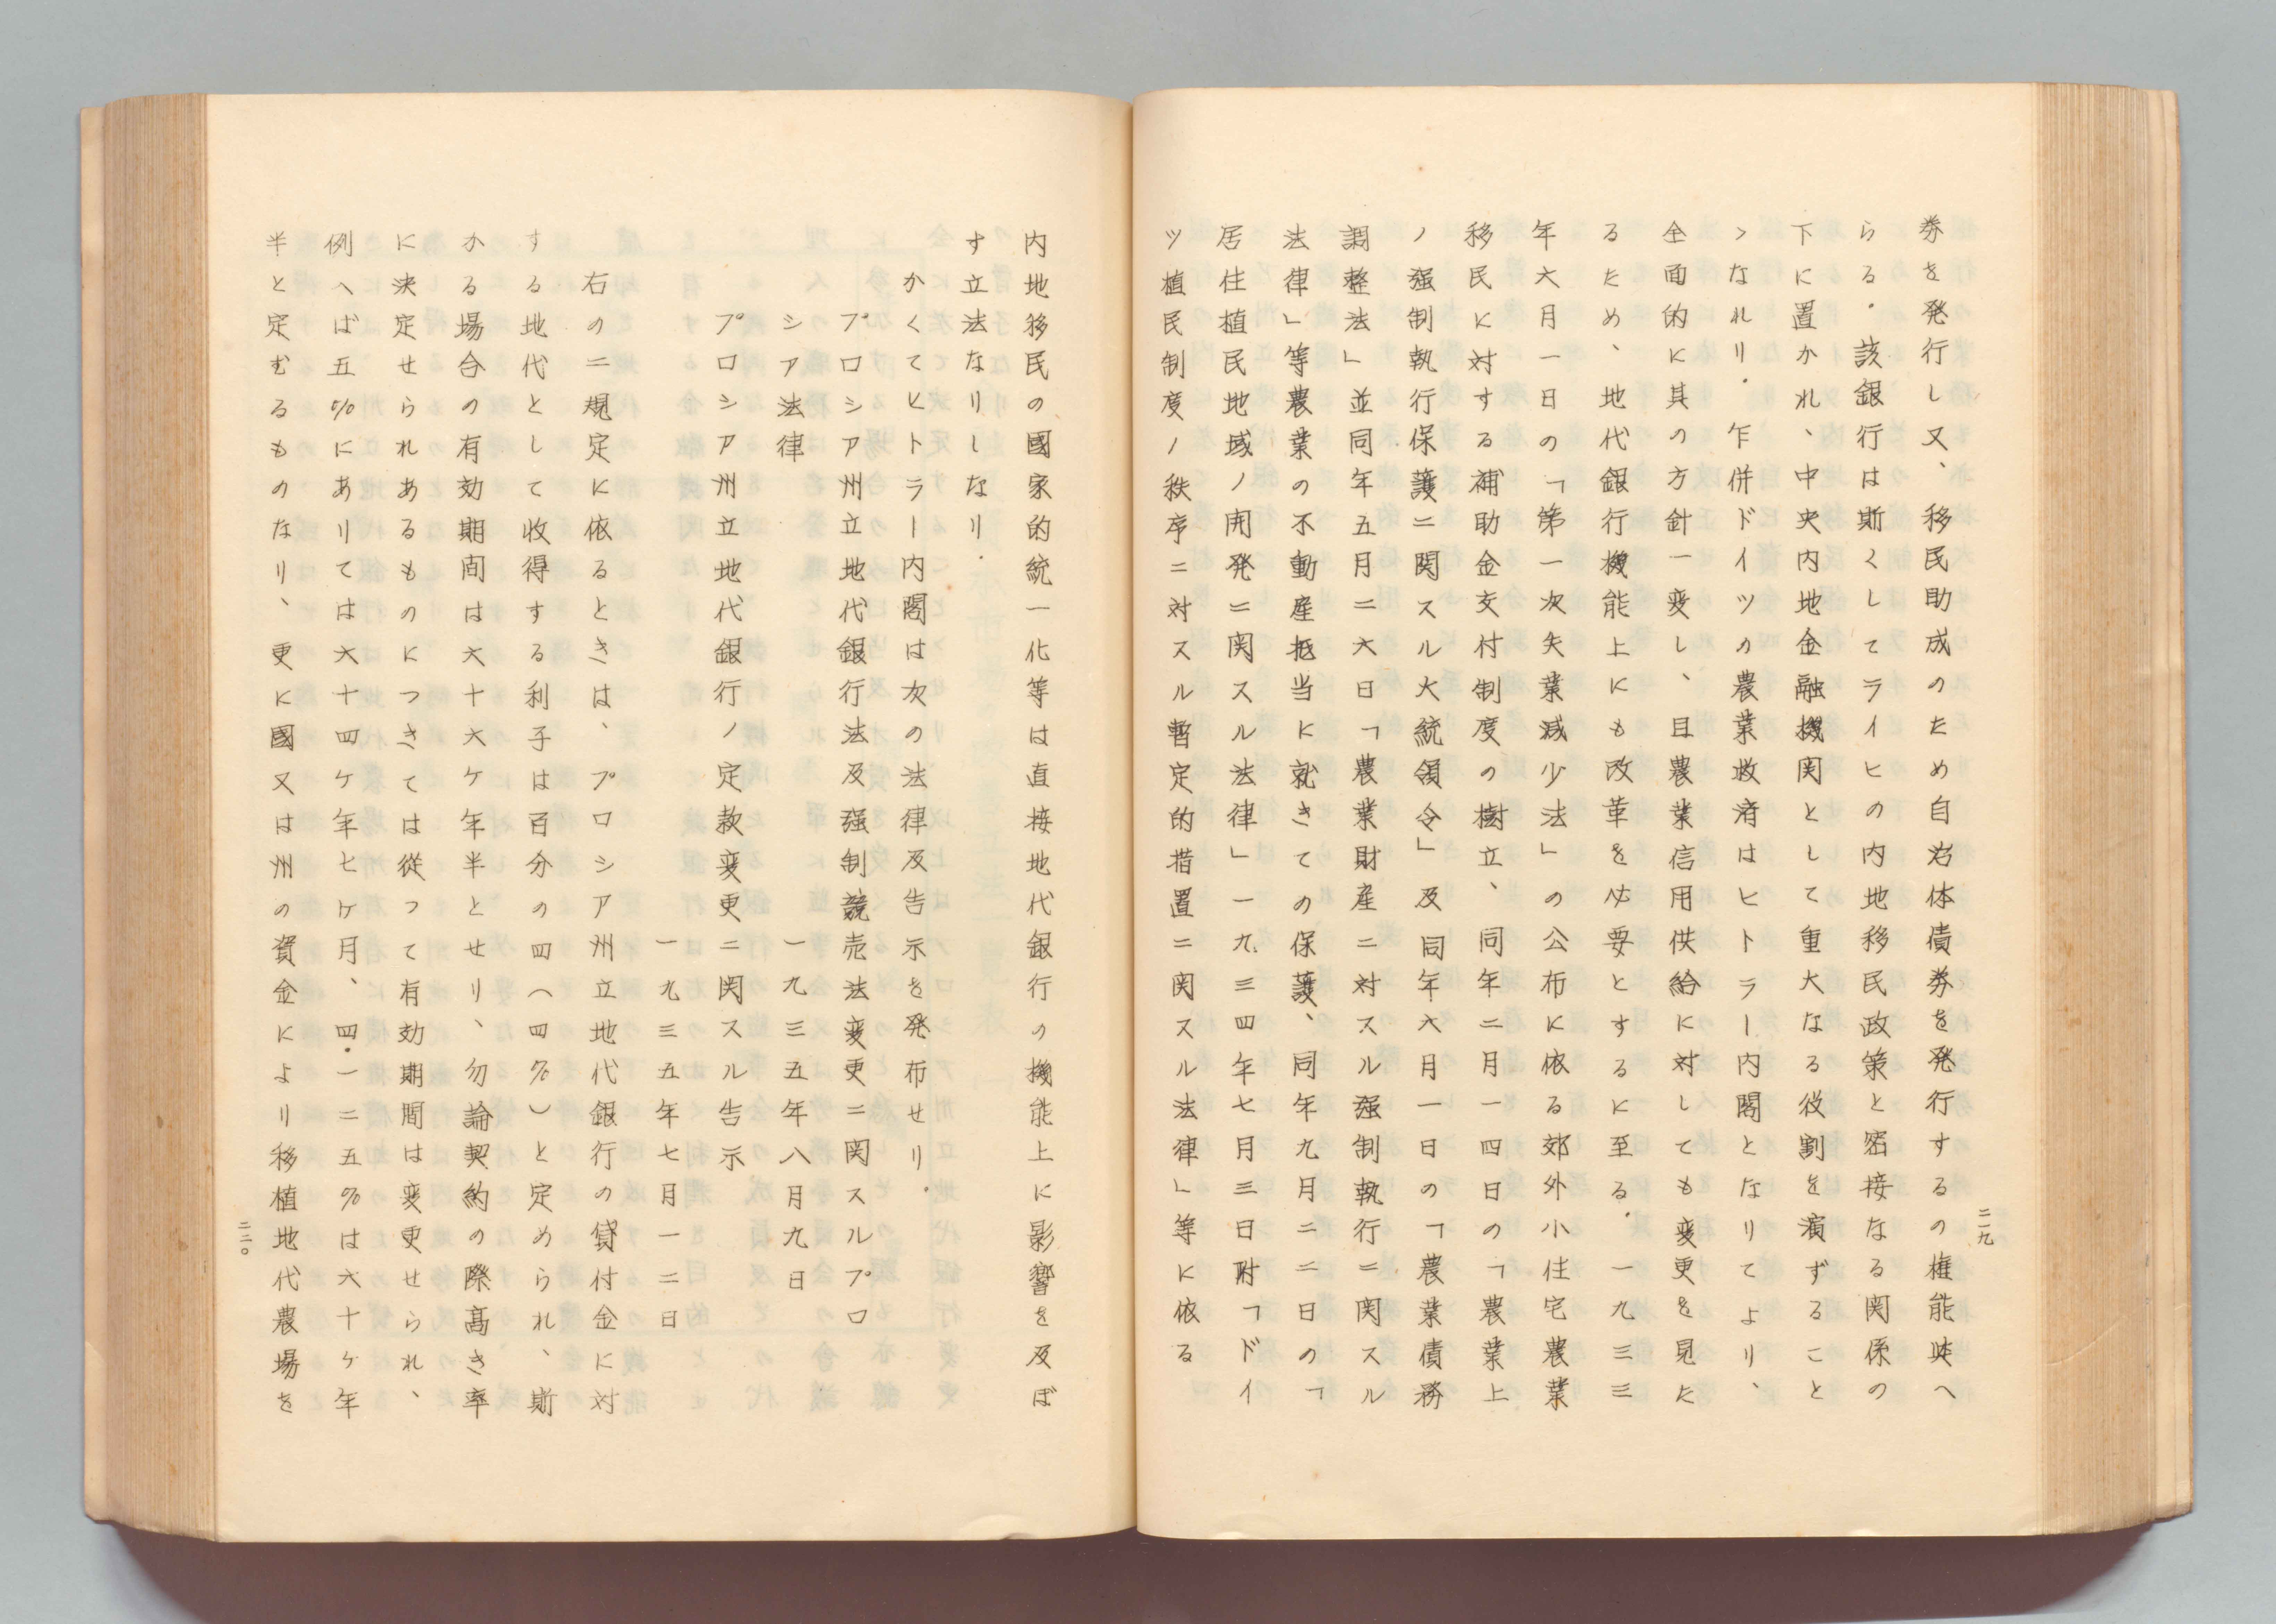 券を発行し又、移民助成のため自治体債券を発行するの権能與へ
らる．該銀行は斯くしてライヒの内地移民政策と密接なる関係の
下に置かれ、中央内地金融機関として重大なる役割を演ずること
ゝなれり．乍併ドイツの農業救済はヒトラー内閣となりてより、
全面的に其の方針一変し、且農業信用供給に対しても変更を見た
るため、地代銀行機能上にも改革を必要とするに至る．一九三三
年六月一日の「第一次失業減少法」の公布に依る郊外小住宅農業
移民に対する補助金交付制度の樹立、同年二月一四日の「農業上
ノ强制執行保護ニ関スル大統領令」及同年六月一日の「農業債務
調整法」並同年五月二六日「農業財産ニ対スル强制執行ニ関スル
法律」等農業の不動産抵当に就きての保護、同年九月二二日の「
居住植民地域ノ開発ニ関スル法律」一九三四年七月三日附「ドイ
ツ植民制度ノ秩序ニ対スル暫定的措置ニ関スル法律」等に依る
二一九
内地移民の國家的統一化等は直接地代銀行の機能上に影響を及ぼ
す立法なりしなり．
かくてヒトラー内閣は次の法律及告示を発布せり．
プロシア州立地代銀行法及强制競売法変更ニ関スルプロ
シア法律　一九三五年八月九日
プロシア州立地代銀行ノ定款変更ニ関スル告示
一九三五年七月一二日
右の二規定に依るときは、プロシア州立地代銀行の貸付金に対
する地代として收得する利子は百分の四（四％）と定められ、斯
かる場合の有効期間は六十六ケ年半とせり、勿論契約の際高き率
に決定せられあるものにつきては従つて有効期間は変更せられ、
例へば五％にありては六十四ケ年七ケ月、四．一二五％は六十ケ年
半と定むるものなり、更に國又は州の資金により移植地代農場を
二二〇